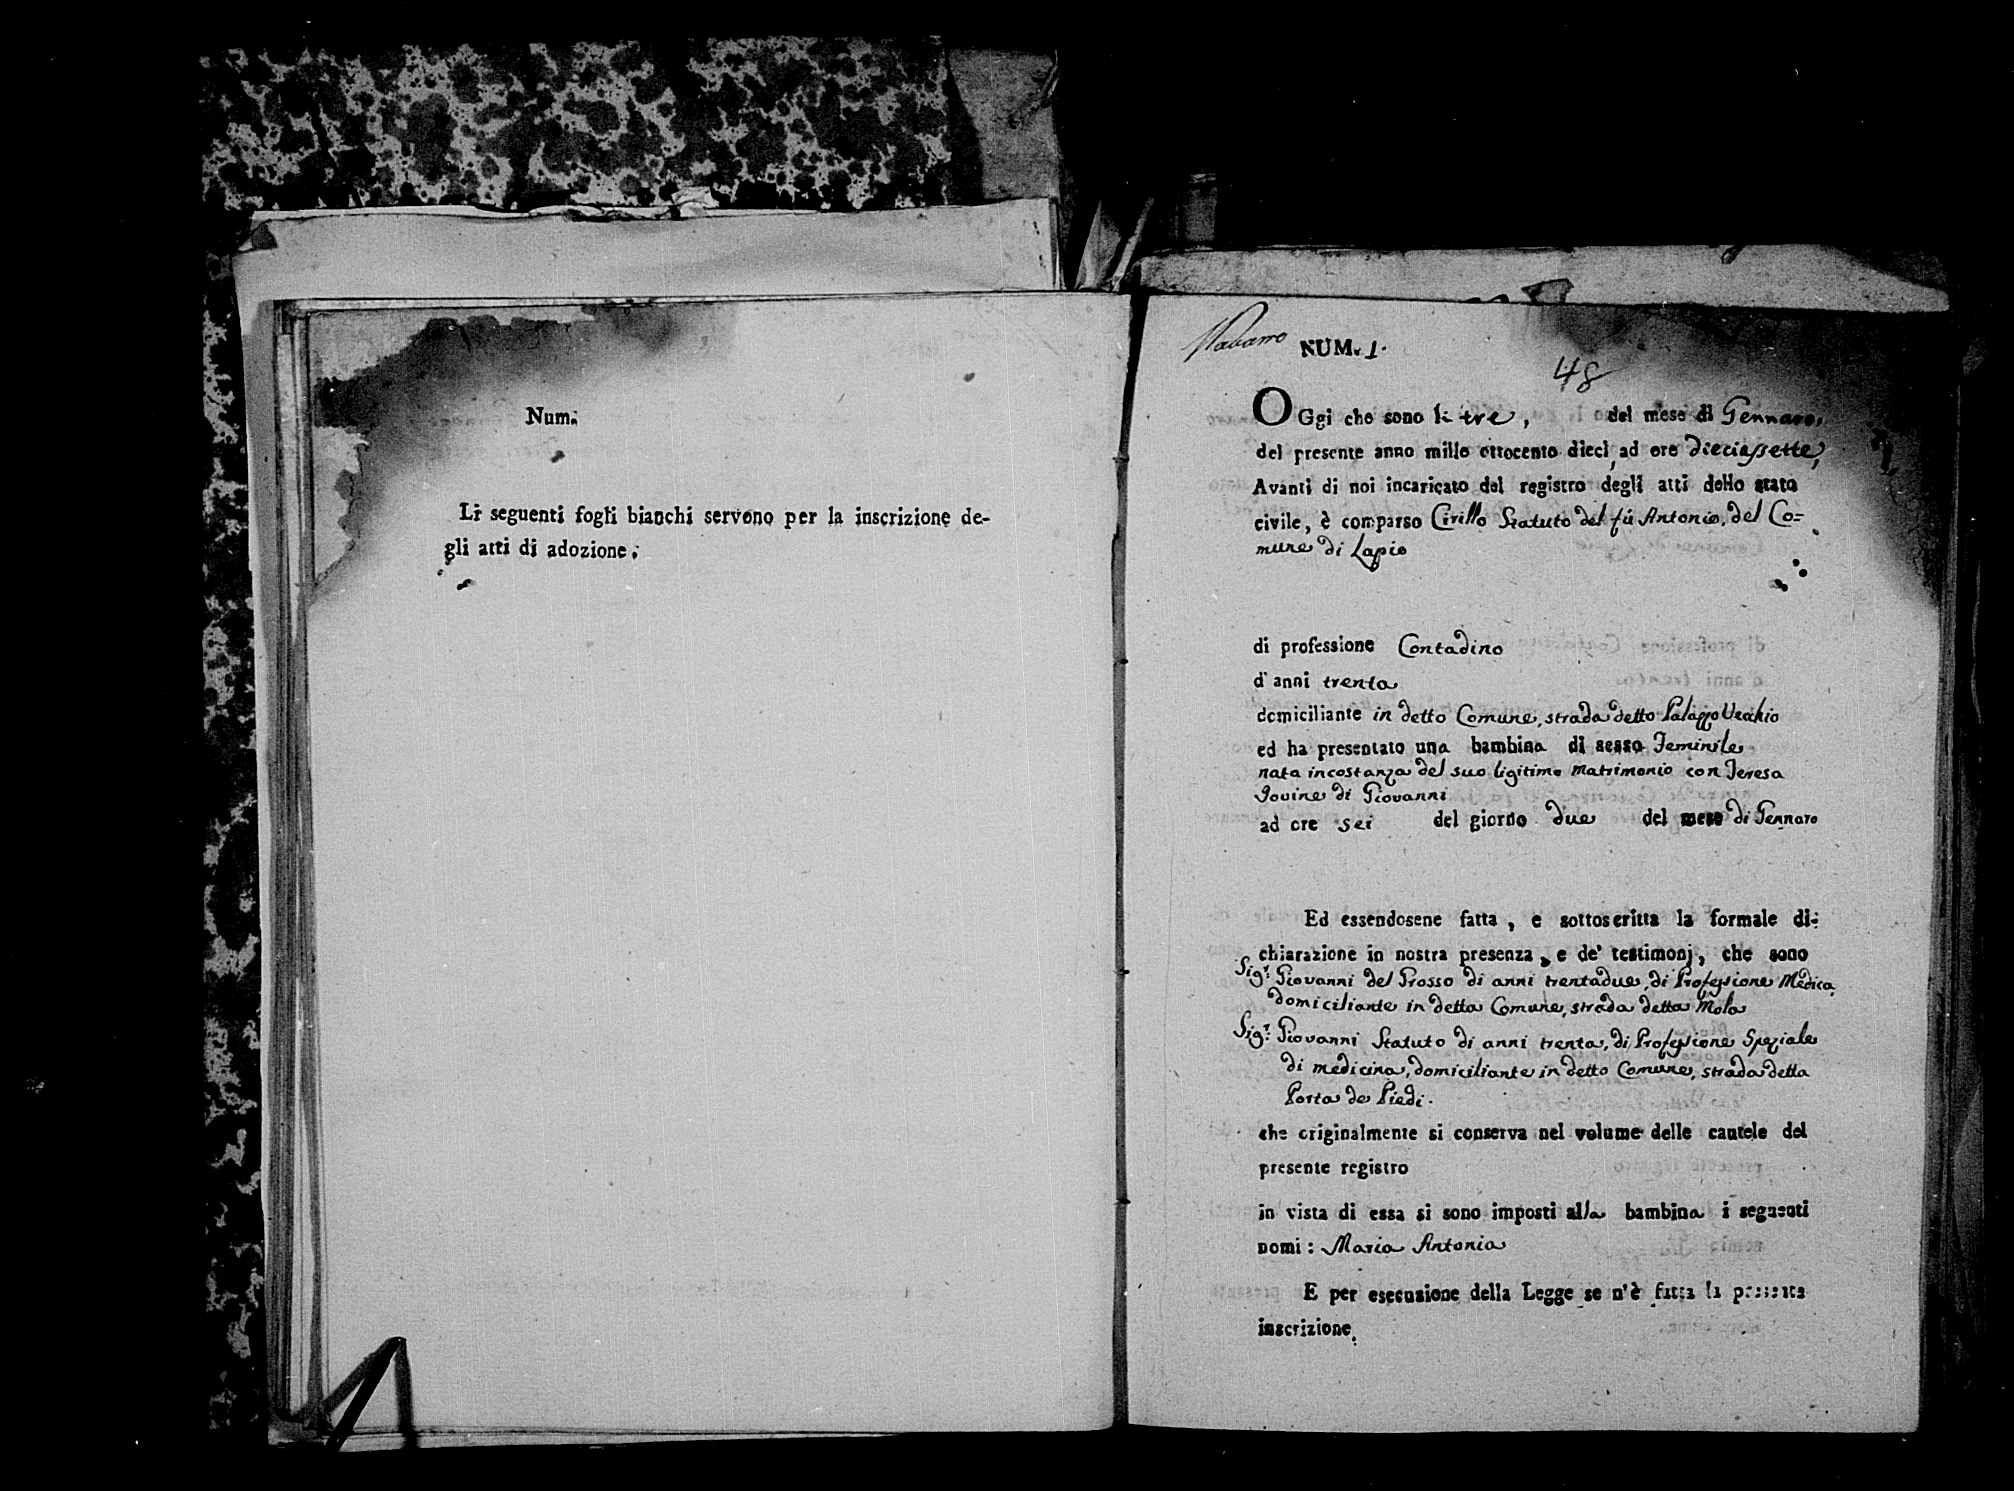 Num.
Li seguenti fogli bianchi servono per la inscrizione de-
gli atti di adozione.
Navarro
NUM. 1.
48
OGgi che sono li tre, del mese di Gennaro,
del presente anno mille ottocento dieci, ad ore dieciassette,
Avanti di noi incaricato del registro degli atti dello stato
civile, è comparso Cirillo Statuto del fù Antonio, del Co=
mune di Lapio
di professione Contadino
d'anni trenta
domiciliante in detto Comune, strada detto Palazzo Vecchio
ed ha presentato una bambina di sesso Feminile
nata incostanza del suo ligitimo matrimonio con Teresa
Iovine di Giovanni
ad ore sei del giorno due del mese di Gennaro
Ed essendosene fatta, e sottoscritta la formale di-
chiarazione in nostra presenza, e de' testimonj, che sono
Sigr: Giovanni del Grosso di anni trentadue, di Professione Medica,
domiciliante in detta Comune, strada detta Mola
Sigr: Giovanni Statuto di anni trenta, di Professione Speziale
di medicina, domiciliante in detto Comune, strada detta
Porta de Piedi.
che originalmente si conserva nel volume delle cautele del
presente registro
in vista di essa si sono imposti alla bambina i seguenti
nomi: Maria Antonia
E per esecuzione della Legge se n'è fatta la presente
inscrizione.